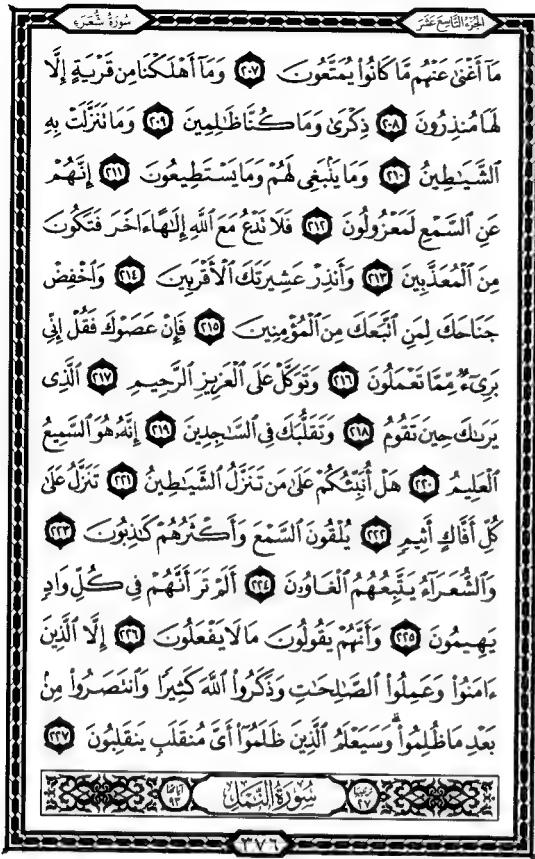 الجزء التاسع عشر سورة الشعراء
مَآ أَغْنَىٰ عَنْهُم مَّا كَانُوا۟ يُمَتَّعُونَ ٢٠٧ وَمَآ أَهْلَكْنَا مِن قَرْيَةٍ إِلَّا
لَهَا مُنذِرُونَ ٢٠٨ ذِكْرَىٰ وَمَا كُنَّا ظَٰلِمِينَ ٢٠٩ وَمَا تَنَزَّلَتْ بِهِ
ٱلشَّيَٰطِينُ ٢١٠ وَمَا يَنۢبَغِى لَهُمْ وَمَا يَسْتَطِيعُونَ ٢١١ إِنَّهُمْ
عَنِ ٱلسَّمْعِ لَمَعْزُولُونَ ٢١٢ فَلَا تَدْعُ مَعَ ٱللَّهِ إِلَٰهًا ءَاخَرَ فَتَكُونَ
مِنَ ٱلْمُعَذَّبِينَ ٢١٣ وَأَنذِرْ عَشِيرَتَكَ ٱلْأَقْرَبِينَ ٢١٤ وَٱخْفِضْ
جَنَاحَكَ لِمَنِ ٱتَّبَعَكَ مِنَ ٱلْمُؤْمِنِينَ ٢١٥ فَإِنْ عَصَوْكَ فَقُلْ إِنِّى
بَرِىٓءٌ مِّمَّا تَعْمَلُونَ ٢١٦ وَتَوَكَّلْ عَلَى ٱلْعَزِيزِ ٱلرَّحِيمِ ٢١٧ ٱلَّذِى
يَرَىٰكَ حِينَ تَقُومُ ٢١٨ وَتَقَلُّبَكَ فِى ٱلسَّٰجِدِينَ ٢١٩ إِنَّهُۥ هُوَ ٱلسَّمِيعُ
ٱلْعَلِيمُ ٢٢٠ هَلْ أُنَبِّئُكُمْ عَلَىٰ مَن تَنَزَّلُ ٱلشَّيَٰطِينُ ٢٢١ تَنَزَّلُ عَلَىٰ
كُلِّ أَفَّاكٍ أَثِيمٍ ٢٢٢ يُلْقُونَ ٱلسَّمْعَ وَأَكْثَرُهُمْ كَٰذِبُونَ ٢٢٣
وَٱلشُّعَرَآءُ يَتَّبِعُهُمُ ٱلْغَاوُۥنَ ٢٢٤ أَلَمْ تَرَ أَنَّهُمْ فِى كُلِّ وَادٍ
يَهِيمُونَ ٢٢٥ وَأَنَّهُمْ يَقُولُونَ مَا لَا يَفْعَلُونَ ٢٢٦ إِلَّا ٱلَّذِينَ
ءَامَنُوا۟ وَعَمِلُوا۟ ٱلصَّٰلِحَٰتِ وَذَكَرُوا۟ ٱللَّهَ كَثِيرًا وَٱنتَصَرُوا۟ مِنۢ
بَعْدِ مَا ظُلِمُوا۟ ۗ وَسَيَعْلَمُ ٱلَّذِينَ ظَلَمُوٓا۟ أَىَّ مُنقَلَبٍ يَنقَلِبُونَ ٢٢٧
ترتيبها ٢٧ سورة النمل آياتها ٩٣
٣٧٦